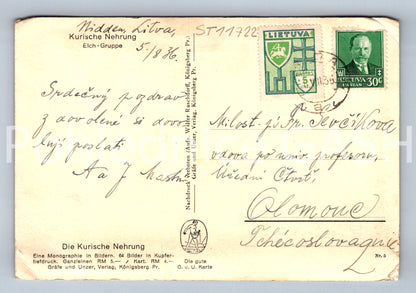 Nidden, Litva,
5./8 36.
ST11722
Kurische Nehrung
Elch-Gruppe
LIETUVA
LIETUVA
PAŠTAS 30c
Srdečný pozdrav
z dovolené si dovo
luji poslati
A a J
Milost. pí Dr. Ševčíková
vdova po univ. profesoru,
Úřední Čtvrť,
Olomouc
Tchécoslovaquie
Nachdruck verboten
Gräfe und Unzer, Verlag, Königsberg Pr.
Die Kurische Nehrung
Eine Monographie in Bildern. 64 Bilder in Kupfer-
tiefdruck. Ganzleinen RM 5.— / Kart. RM 3.—
Gräfe und Unzer, Verlag, Königsberg Pr.
Die gute
G. u. U. Karte
Nr. 5